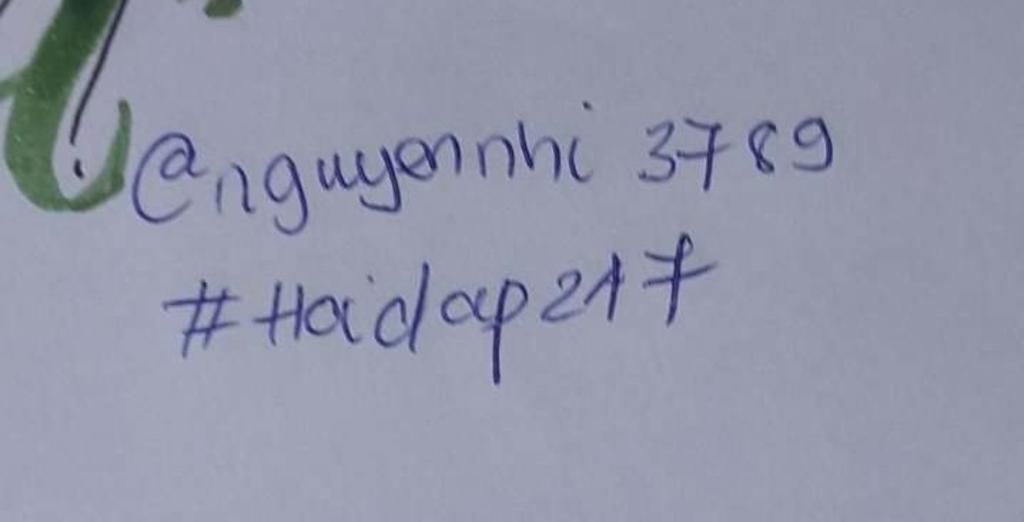 @nguyennhi 3789
#Haidap217